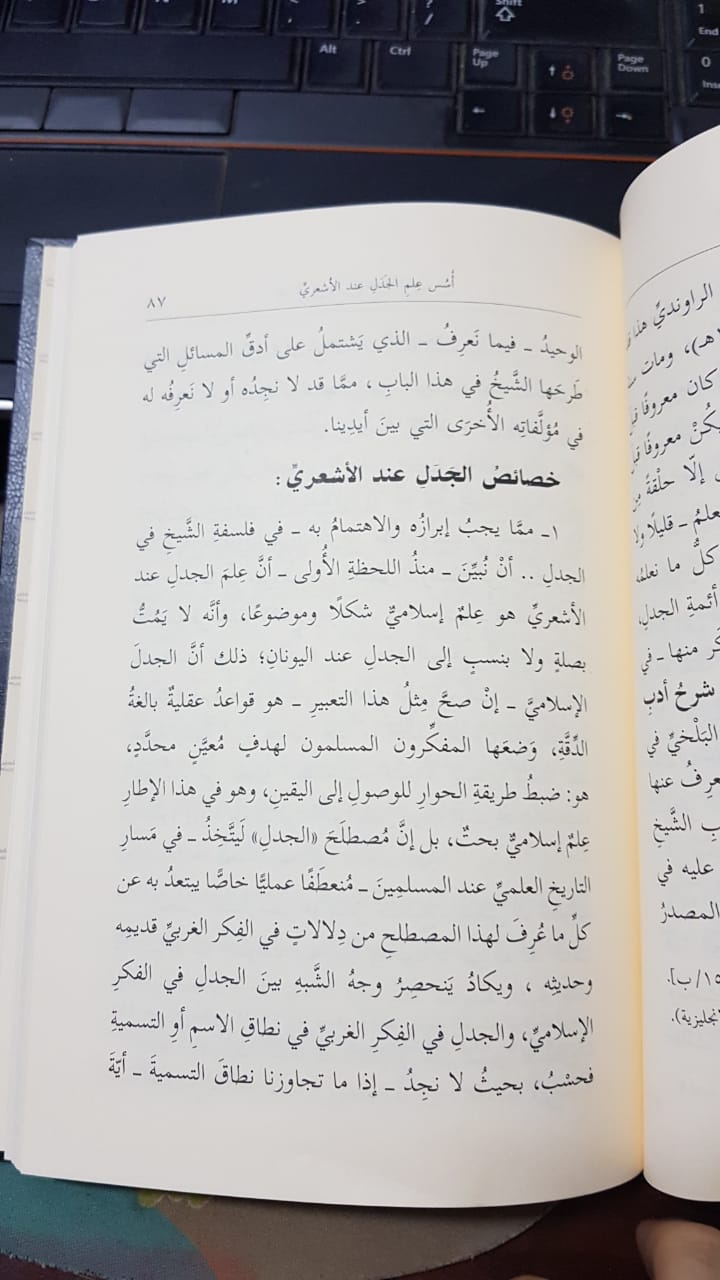 Shift
End
Alt
Ctrl
Page Up
Page Down
أُسُس عِلمِ الجَدَلِ عند الأشعريِّ
٨٧
الوحيدُ ـ فيما نَعرِفُ ـ الذي يَشتملُ على أدقِّ المسائلِ التي
طَرحَها الشَّيخُ في هذا البابِ، ممَّا قد لا نجِدُه أو لا نَعرِفُه له
في مُؤلَّفاتِه الأُخرَى التي بينَ أيدِينا.
خصائصُ الجَدَلِ عند الأشعريِّ:
١ـ ممَّا يجبُ إبرازُه والاهتمامُ به ـ في فلسفةِ الشَّيخِ في
الجدلِ .. أنْ نُبيِّنَ ـ منذُ اللحظةِ الأُولى ـ أنَّ عِلمَ الجدلِ عند
الأشعريِّ هو عِلمٌ إسلاميٌّ شكلًا وموضوعًا، وأنَّه لا يَمُتُّ
بصلةٍ ولا بنسبٍ إلى الجدلِ عند اليونانِ؛ ذلك أنَّ الجدلَ
الإسلاميَّ ـ إنْ صحَّ مِثلُ هذا التعبيرِ ـ هو قواعدُ عقليةٌ بالغةُ
الدِّقَّةِ، وَضعَها المفكِّرون المسلمون لهدفٍ مُعيَّنٍ محدَّدٍ،
هو: ضبطُ طريقةِ الحوارِ للوصولِ إلى اليقينِ، وهو في هذا الإطارِ
عِلمٌ إسلاميٌّ بحتٌ، بل إنَّ مُصطلَحَ «الجدلِ» لَيتَّخِذُ ـ في مَسارِ
التاريخِ العلميِّ عند المسلمِينَ ـ مُنعطَفًا عمليًّا خاصًّا يبتعدُ به عن
كلِّ ما عُرِفَ لهذا المصطلحِ من دِلالاتٍ في الفِكر الغربيِّ قديمِه
وحديثِه ، ويكادُ يَنحصِرُ وجهُ الشَّبهِ بينَ الجدلِ في الفكرِ
الإسلاميِّ، والجدلِ في الفِكرِ الغربيِّ في نطاقِ الاسمِ أوِ التسميةِ
فحسْبُ، بحيثُ لا نجِدُ ـ إذا ما تجاوزنا نطاقَ التسميةَ ـ أيّةَ
الراونديِّ هذا
، ومات
كان معروفًا
يكُنْ معروفًا
إلّا حلْقةً
ـ قليلًا ولا
كلُّ ما نعلمُه
أئمةِ الجدلِ
منها ـ في
شرحُ أدبِ
البَلْخيِّ في
عنها
الشَّيخِ
عليه في
المصدرُ
١٥/ب].